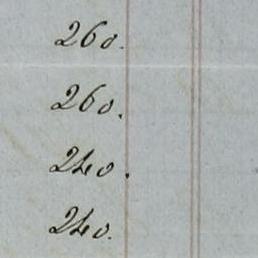 260.
260.
240.
240.